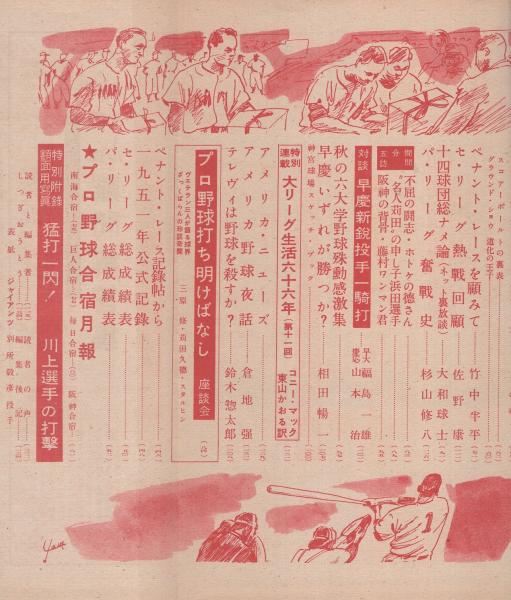 スコアーボールドの裏表
グラウンド・ショウ 道化の王子
ペナント・レースを顧みて 竹中半平
セ・リーグ 熱戦回顧 佐野康
十四球団総ナメ論(ネット裏放談) 大和球士
パ・リーグ 奮戦史 杉山修八
五分訪問
不屈の闘志・ホトケの徳さん
“名人苅田”の申し子浜田選手
阪神の背骨・藤村ワンマン君
対談 早慶新鋭投手一騎打 早大 福島一雄 慶応 山本治
秋の六大学野球殊勲感激集
早慶いずれが勝つか? 相田暢一
神宮球場スケッチブック
特別連載 大リーグ生活六十六年(第十一回) コニー・マック 東山かおる訳
アメリカ・ニューズ
アメリカ野球夜話 倉地強
テレヴィは野球を殺すか? 鈴木惣太郎
ヴェテラン三人が語る球界
ざっくばらんの珍談奇聞
プロ野球打ち明けばなし 座談会
三原修・苅田久徳・スタルヒン
ペナント・レース記録帖から
一九五一年公式記録
セ・リーグ 総成績表
パ・リーグ 総成績表
★プロ野球合宿月報
南海合宿 巨人合宿 毎日合宿 阪神合宿
特別附録 額面用写真 猛打一閃! 川上選手の打撃
読者と編集者 読者の声
しつぎおうとう 編集後記
表紙 ジャイアンツ 別所毅彦投手
Yam
1